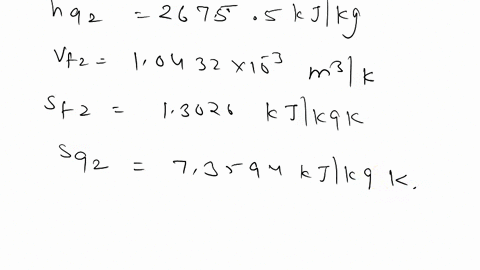 hg2 = 2675.5 kJ/kg
Vf2 = 1.0432 × 10^-3 m³/k
Sf2 = 1.3026 kJ/kgK
Sg2 = 7.3594 kJ/kg K.